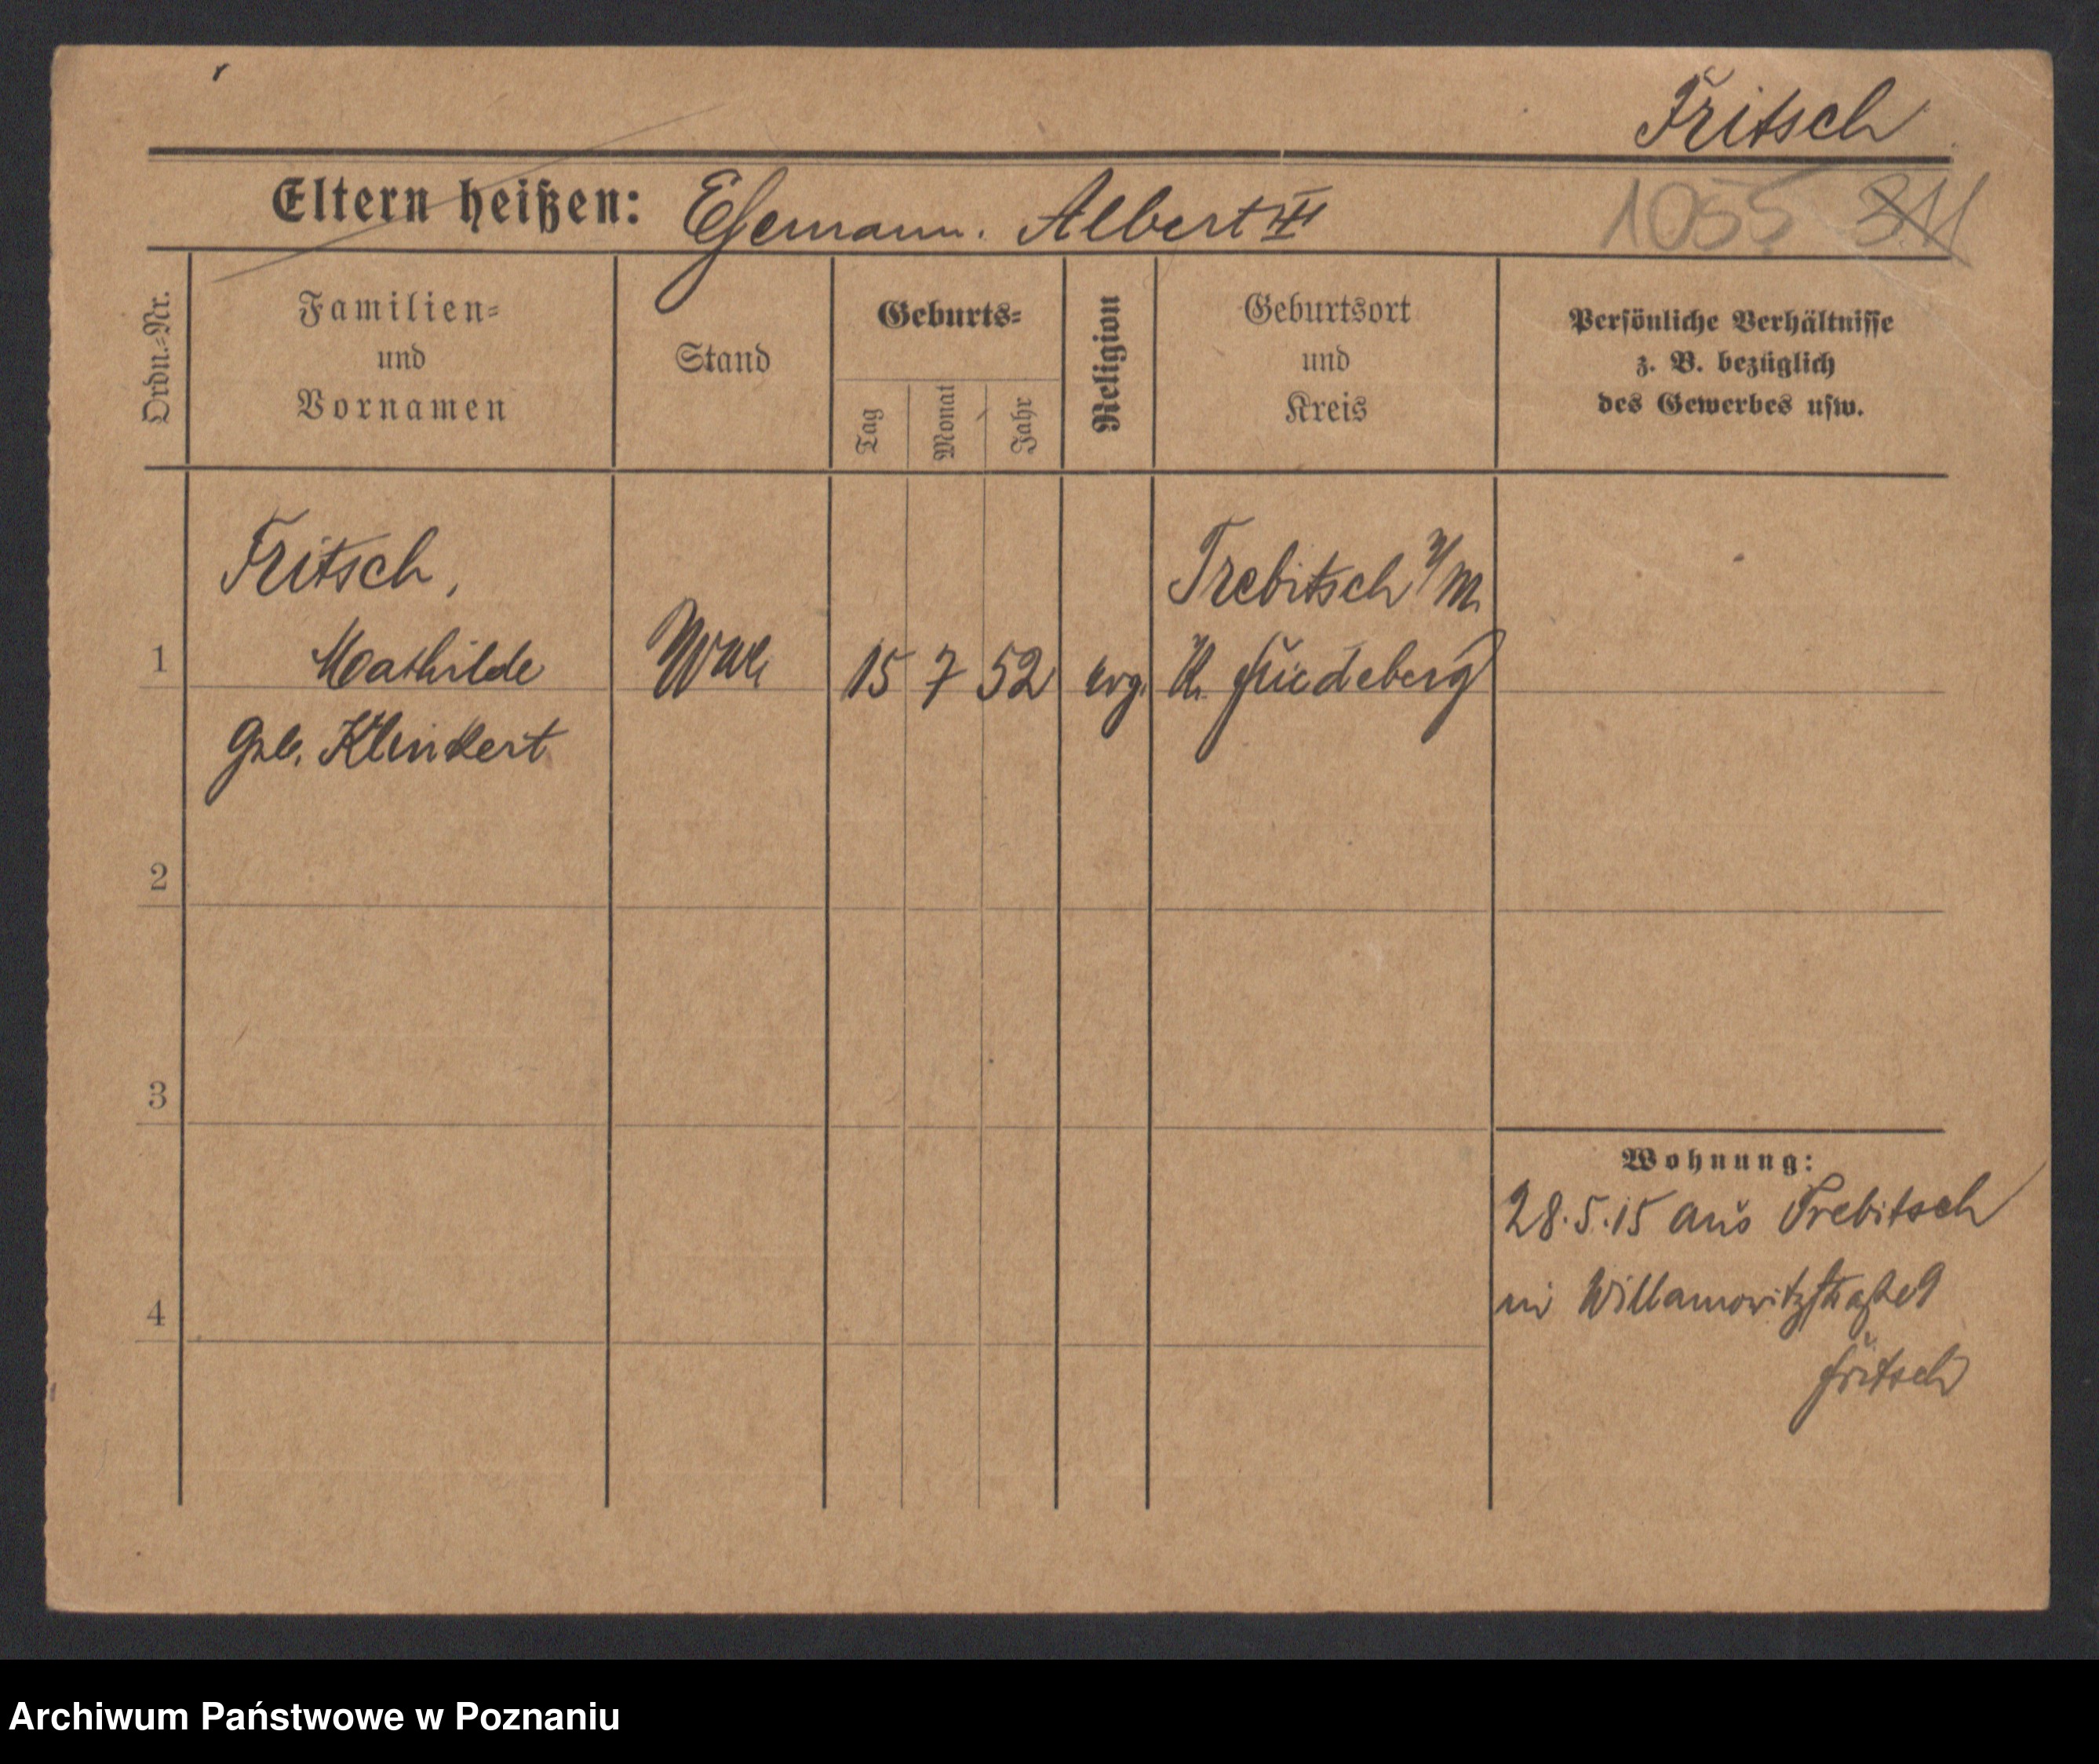 Fritsch
Eltern heißen: Ehemann. Albert III
1055 311
Ordn.-Nr.
Familien-
und
Vornamen
Stand
Geburts-
Tag
Monat
Jahr
Religion
Geburtsort
und
Kreis
Persönliche Verhältnisse
z. B. bezüglich
des Gewerbes usw.
Fritsch,
Mathilde
geb. Klinkert
1
Wwe
15 7 52
evg.
Trebitsch
Kr. Friedeberg
2
3
4
Wohnung:
28.5.15 aus Trebitsch
Willamowitzstraße 9
Fritsch
Archiwum Państwowe w Poznaniu